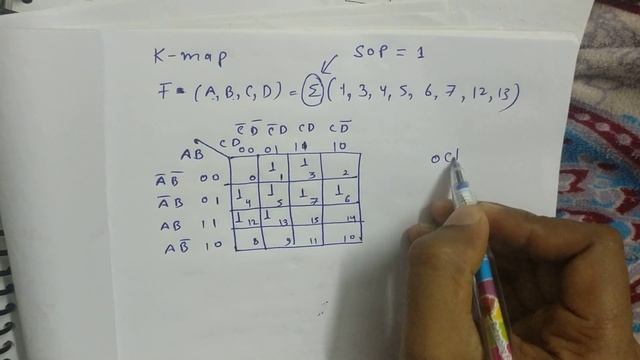 K-map SOP = 1
F = (A, B, C, D) = Σ (1, 3, 4, 5, 6, 7, 12, 13)
C̅ D̅ C̅ D CD C D̅
AB CD 00 01 11 10
A̅ B̅ 00 0 1 1 1 3 2
A̅ B 01 1 4 1 5 1 7 1 6
AB 11 1 12 1 13 15 14
A B̅ 10 8 9 11 10
oct